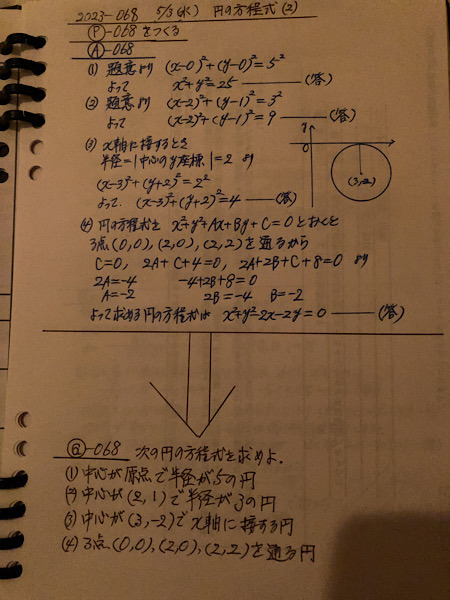 2023-068 5/3(水) 円の方程式(2)
Ⓟ-068をつくる
Ⓐ-068
(1) 題意より (x-0)²+(y-0)²=5²
よって x²+y²=25 ——(答)
(2) 題意より (x-2)²+(y-1)²=3²
よって (x-2)²+(y-1)²=9 ——(答)
(3) x軸に接するとき
半径=|中心のy座標|=2 より
(x-3)²+(y+2)²=2²
よって. (x-3)²+(y+2)²=4 ——(答)
y
0
(3,-2)
(4) 円の方程式を x²+y²+Ax+By+C=0とおくと
3点(0,0),(2,0),(2,2)を通るから
C=0, 2A+C+4=0, 2A+2B+C+8=0 より
2A=-4 -4+2B+8=0
A=-2 2B=-4 B=-2
よって求める円の方程式は x²+y²-2x-2y=0 ——(答)
Ⓠ-068 次の円の方程式を求めよ.
(1) 中心が原点で半径が5の円
(2) 中心が(2,1)で半径が3の円
(3) 中心が(3,-2)でx軸に接する円
(4) 3点(0,0),(2,0),(2,2)を通る円